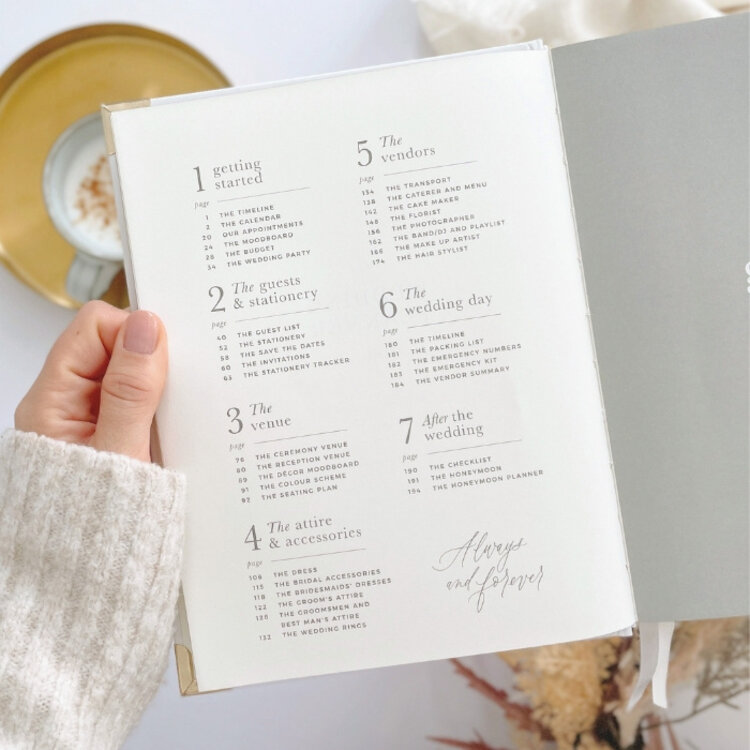 1 getting
started
page
1 THE TIMELINE
2 THE CALENDAR
20 OUR APPOINTMENTS
24 THE MOODBOARD
28 THE BUDGET
34 THE WEDDING PARTY
2 The guests
& stationery
page
40 THE GUEST LIST
52 THE STATIONERY
58 THE SAVE THE DATES
60 THE INVITATIONS
63 THE STATIONERY TRACKER
3 The
venue
page
76 THE CEREMONY VENUE
80 THE RECEPTION VENUE
89 THE DÉCOR MOODBOARD
91 THE COLOUR SCHEME
92 THE SEATING PLAN
4 The attire
& accessories
page
106 THE DRESS
115 THE BRIDAL ACCESSORIES
118 THE BRIDESMAIDS' DRESSES
122 THE GROOM'S ATTIRE
126 THE GROOMSMEN AND
BEST MAN'S ATTIRE
132 THE WEDDING RINGS
5 The
vendors
page
134 THE TRANSPORT
138 THE CATERER AND MENU
142 THE CAKE MAKER
148 THE FLORIST
156 THE PHOTOGRAPHER
162 THE BAND/DJ AND PLAYLIST
166 THE MAKE UP ARTIST
174 THE HAIR STYLIST
6 The
wedding day
page
180 THE TIMELINE
181 THE PACKING LIST
182 THE EMERGENCY NUMBERS
183 THE EMERGENCY KIT
184 THE VENDOR SUMMARY
7 After the
wedding
page
190 THE CHECKLIST
191 THE HONEYMOON
194 THE HONEYMOON PLANNER
Always
and forever